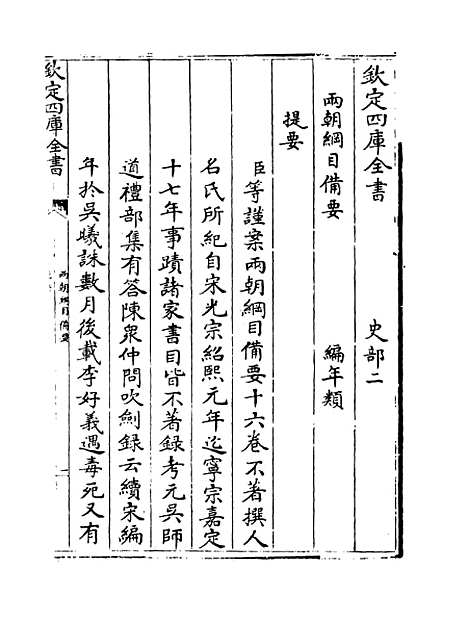 欽定四庫全書 史部二
兩朝綱目備要 編年類
提要
臣等謹案兩朝綱目備要十六卷不著撰人
名氏所紀自宋光宗紹熙元年迄寧宗嘉定
十七年事蹟諸家書目皆不著錄考元吳師
道禮部集有答陳衆仲問吹劍録云續宋編
年於吳曦誅數月後載李好義遇毒死又有
欽定四庫全書
兩朝綱目備要
一